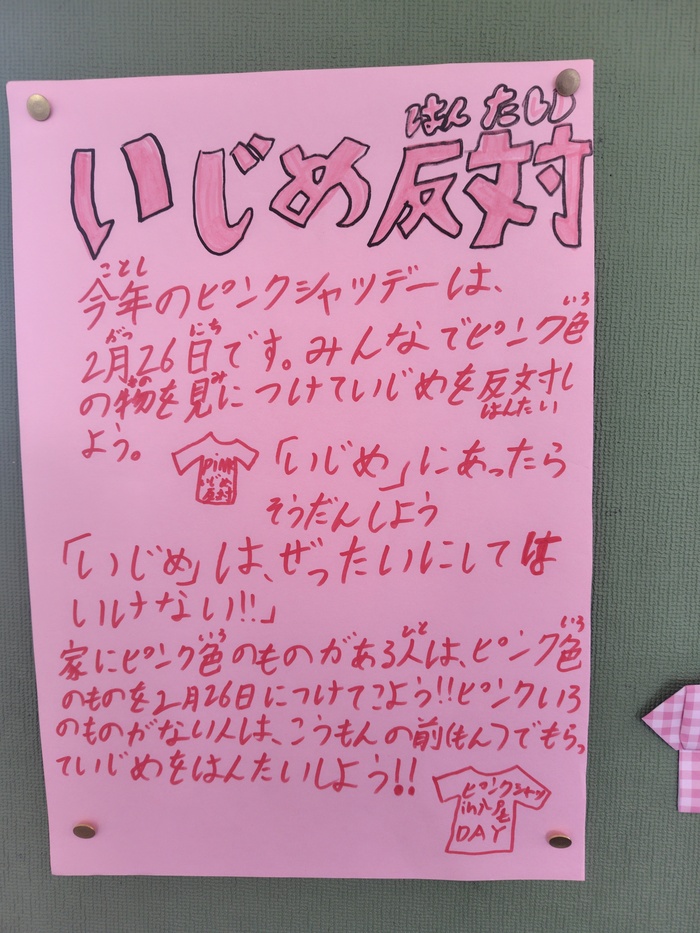 はんたい
いじめ反対
ことし
今年のピンクシャツデーは、
がつ にち いろ
2月26日です。みんなでピンク色
もの み
の物を見につけていじめを反対し
はんたい
よう。
PiNK
いじめ
反対
「いじめ」にあったら
そうだんしよう
「いじめ」は、ぜったいにしては
いけない!!」
いろ ひと いろ
家にピンク色のものがある人は、ピンク色
のものを2月26日につけてこよう!!ピンクいろ
のものがない人は、こうもんの前(もん)でもらっ
ていじめをはんたいしよう!!
ピンクシャツ
DAY